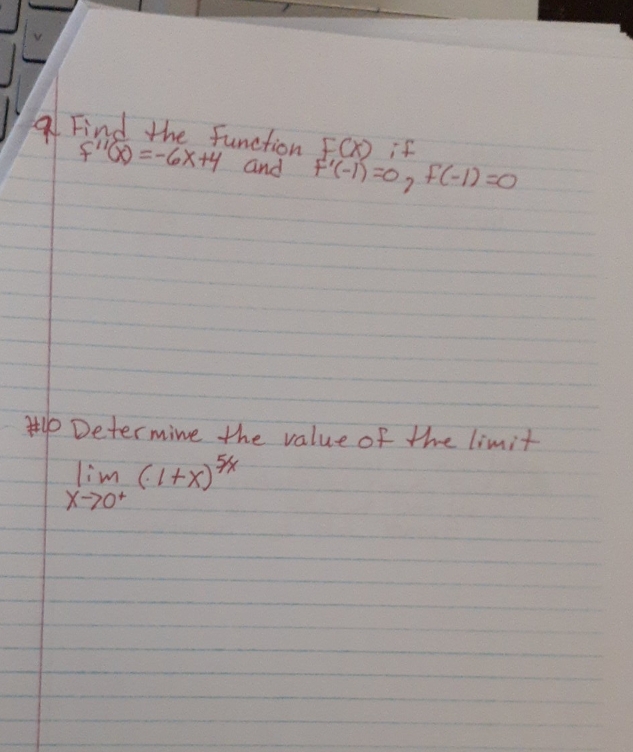 9. Find the function F(x) if
f''(x) = -6x+4 and f'(-1)=0, f(-1)=0
#10 Determine the value of the limit
lim (1+x)^5/x
x→0⁺